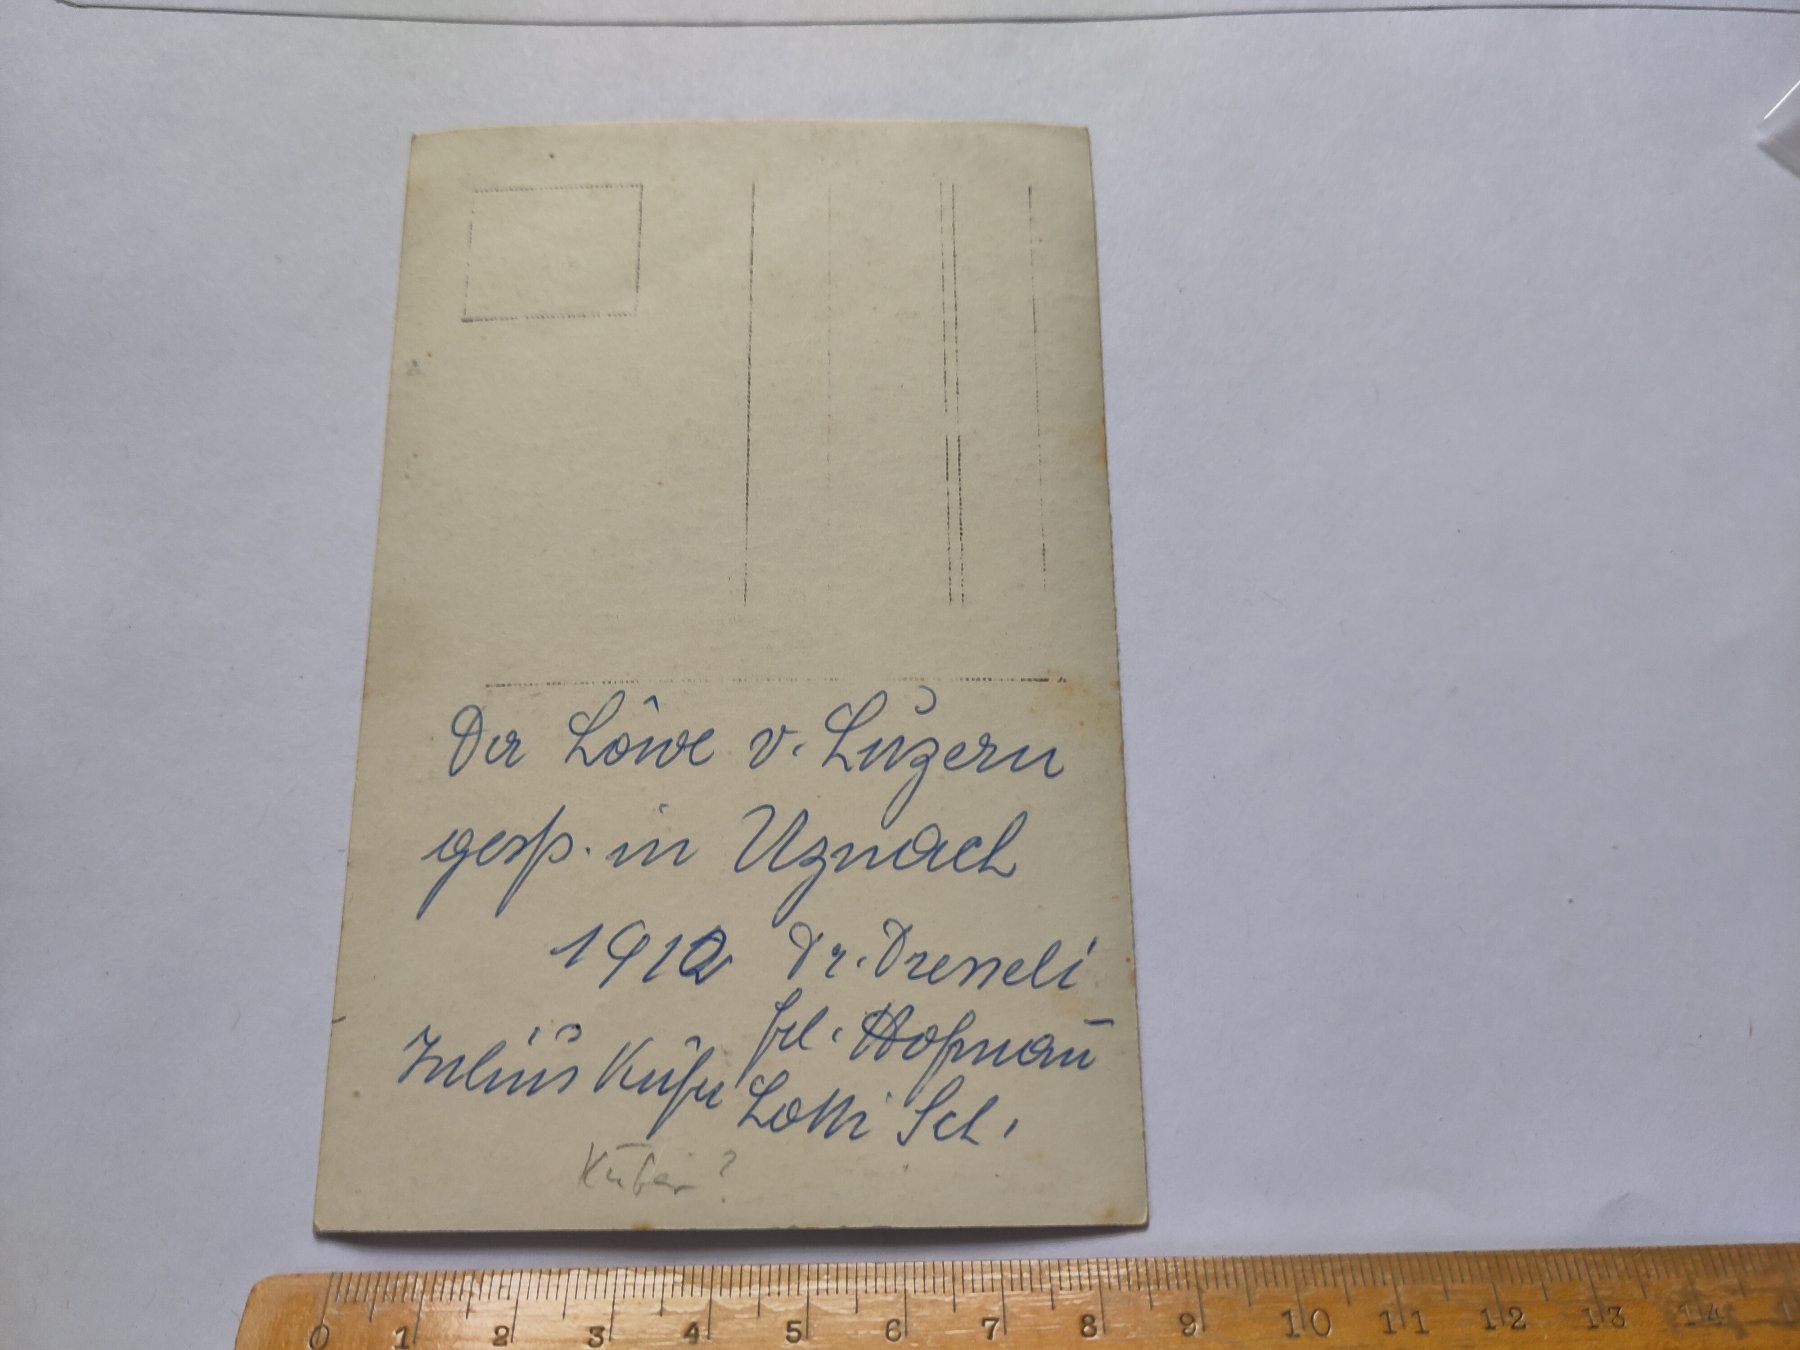 Der Löwe v. Luzern
gesp. in Uznach
1912 Dr. Dresseli
frl. Hofmañ
Julius Lotti Sch.
Küfer?
0 1 2 3 4 5 6 7 8 9 10 11 12 13 14